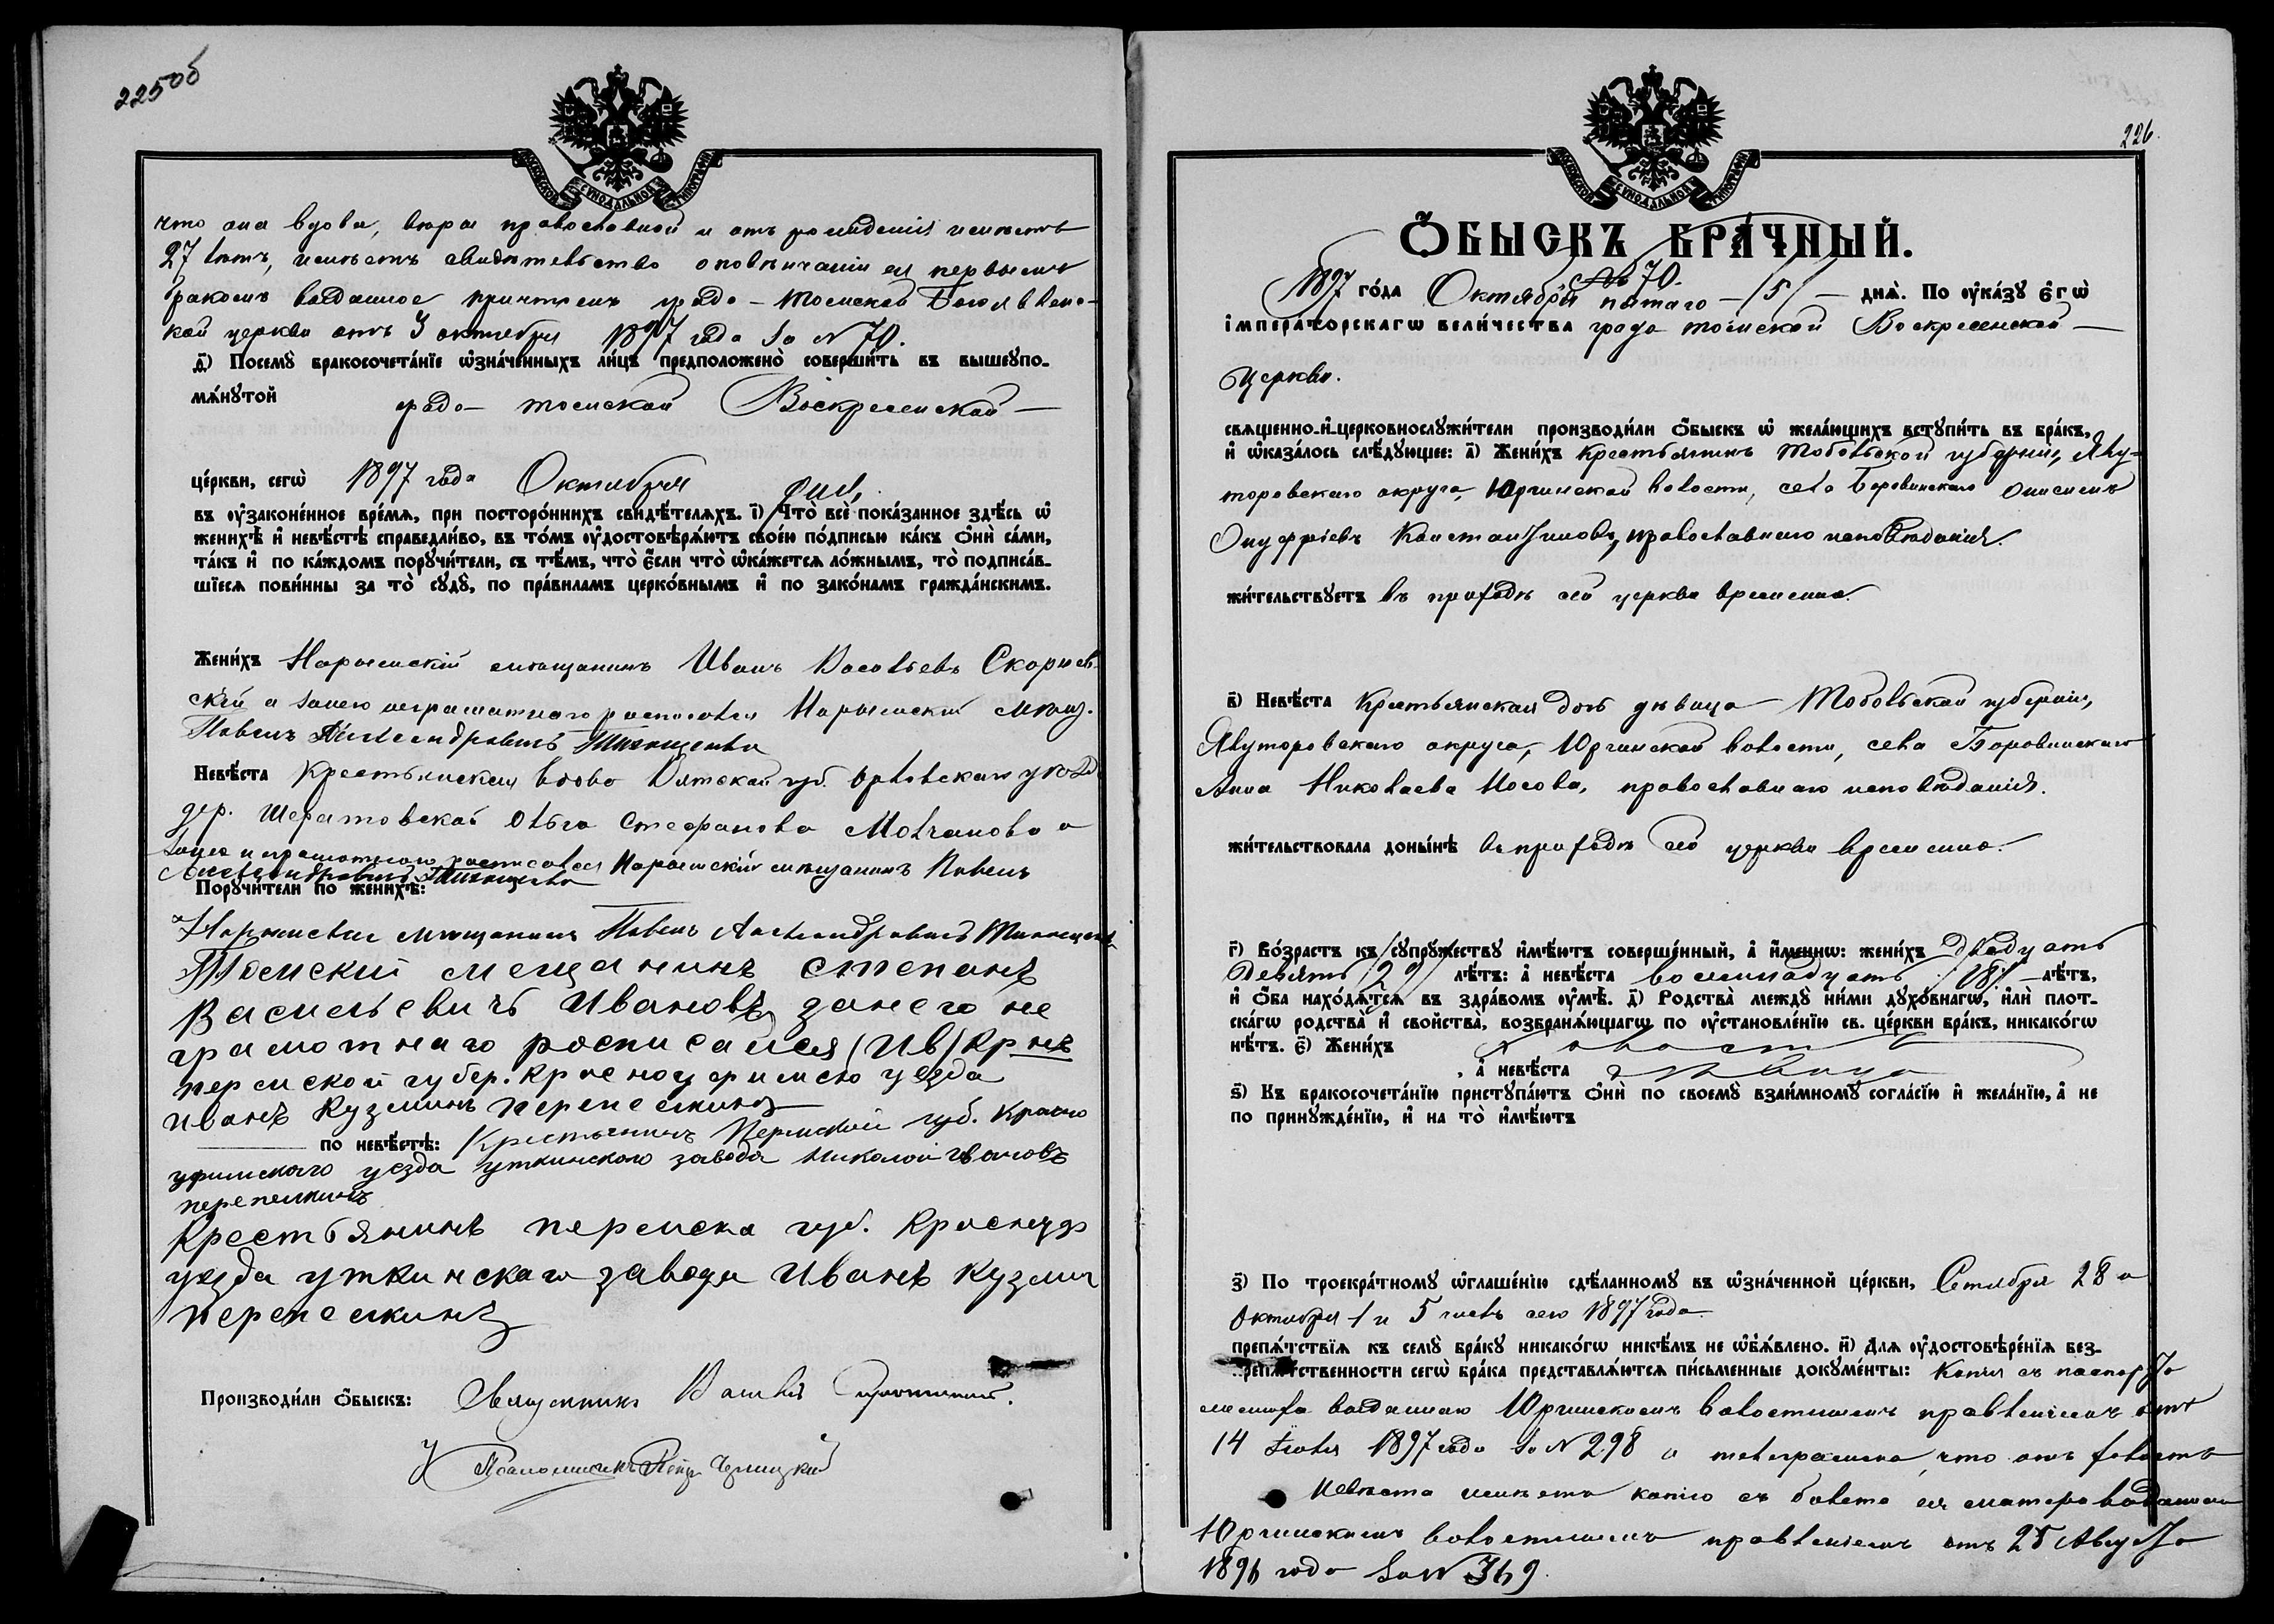 225об
что она вдова, веры православной и отъ рожденія имѣетъ
27 лѣтъ, имѣетъ свидѣтельство о повѣнчаніи ея первымъ
бракомъ выданное причтомъ градо-Томской Богоявленс-
кой церкви отъ 3 октября 1897 года за № 70.
д҃і) Посемꙋ̀ бракосочета́нїе ѡ҆зна́ченныхъ ли́цъ предположено̀ соверши́ть въ вышеꙋпо-
мѧ́нꙋтой градо-Томской Воскресенской
це́ркви, сегѡ̀ 1897 года Октября дня,
въ ᲂу҆законе́нное вре́мѧ, при посторо́ннихъ свидѣ́телѧхъ. і҃) Что̀ всѐ пока́занное здѣ́сь ѡ҆
женихѣ̀ и҆ невѣ́стѣ справедли́во, въ то́мъ ᲂу҆достовѣрѧ́ютъ свое́ю по́дписью ка́къ ѻ҆нѝ са́ми,
та́къ и҆ по ка́ждомъ порꙋчи́тели, съ тѣ́мъ, что̀ є҆́сли что̀ ѡ҆ка́жетсѧ ло́жнымъ, то̀ подписа́в-
шїесѧ пови́нны за то̀ сꙋдꙋ̀, по пра́виламъ церко́внымъ и҆ по зако́намъ гражда́нскимъ.
Жени́хъ Нарымскій мѣщанинъ Иванъ Васильевъ Скорнев-
скій а за него неграмотнаго росписался Нарымскій мѣщ.
Павелъ Александровичъ
Невѣ́ста Крестьянская вдова Вятской губ. Орловскаго уѣзда
дер. Ольга Стефанова Молчанова а
за нея неграмотную росписался Нарымскій мѣщанинъ Павелъ
Александровичъ
Порꙋчи́тели по женихѣ̀:
Нарымскій мѣщанинъ Павелъ Александровичъ
Томский мещанинъ степанъ
Васильевичъ Ивановъ занего не
грамотнаго росписался (Ив) Крнъ
пермской губер. Красноуфимско уезда
иванъ Кузминъ перепелкинъ
по невѣ́стѣ: Крестьянинъ Пермской губ. Красно
уфимскаго уезда уткинскаго завода Николай Ивановъ
перепелкинъ
Крестьянинъ пермска губ. Красноуф
уезда уткинскаго завода Иванъ Кузмич
перепелкинъ
Производи́ли ѻ҆́быскъ: Священникъ
Псаломщикъ Петръ
226.
Ѻ҆́БЫСКЪ БРА́ЧНЫЙ.
№ 70.
1897 го́да Октября пятаго -/5/- днѧ̀. По ᲂу҆ка́зꙋ є҆гѡ̀
і҆мпера́торскагѡ вели́чества градо Томской Воскресенской
Церкви.
свѧще́нно-и҆-церковнослꙋжи́тели производи́ли ѻ҆́быскъ ѡ҆ жела́ющихъ встꙋпи́ть въ бра́къ,
и҆ ѡ҆каза́лось слѣ́дꙋющее: а҃) Жени́хъ Крестьянинъ Тобольской губерніи, Ялу-
торовскаго округа, Юргинской волости, села Боровинскаго Онисимъ
Онуфріевъ Константиновъ, православнаго исповѣданія.
жи́тельствꙋетъ въ приходѣ сей церкви временно.
в҃) Невѣ́ста Крестьянская дочь дѣвица Тобольской губерніи,
Ялуторовскаго округа, Юргинской волости, села Боровинскаго
Анна Николаева Носова, православнаго исповѣданія.
жи́тельствовала доны́нѣ въ приходѣ сей церкви временно.
г҃) Во́зрастъ къ сꙋпрꙋ́жествꙋ и҆мѣ́ютъ соверше́нный, а҆ и҆́меннѡ: жени́хъ двадцать
девять /29/ лѣ́тъ: а҆ невѣ́ста восемнадцать /18/ лѣ́тъ,
и҆ ѻ҆́ба нахо́дѧтсѧ въ здра́вомъ ᲂу҆мѣ̀. д҃) Родства̀ междꙋ̀ ни́ми дꙋхо́внагѡ, и҆лѝ плот-
ска́гѡ родства̀ и҆ сво́йства, возбранѧ́ющагѡ по ᲂу҆становле́нїю св. це́ркви бра́къ, никако́гѡ
нѣ́тъ. є҃) Жени́хъ холостъ
, а҆ невѣ́ста дѣвица
ѕ҃) Къ бракосочета́нїю пристꙋпа́ютъ ѻ҆нѝ по своемꙋ̀ взаи́мномꙋ согла́сїю и҆ жела́нїю, а҆ не
по принꙋжде́нїю, и҆ на то̀ и҆мѣ́ютъ
з҃) По троекра́тномꙋ ѡ҆глаше́нїю сдѣ́ланномꙋ въ ѡ҆зна́ченной це́ркви, Сентября 28 и
Октября 1 и 5 чиселъ сего 1897 года.
препѧ́тствїѧ къ семꙋ̀ бра́кꙋ никако́гѡ никѣ́мъ не ѡ҆б̾ѧ́влено. и҃) Длѧ ᲂу҆достовѣре́нїѧ без-
препѧ́тственности сегѡ̀ бра́ка представлѧ́ютсѧ пи́сьменные докꙋме́нты: Копія съ паспорта
жениха выданнаго Юргинскимъ волостнымъ правленіемъ отъ
14 Іюля 1897 года за № 298 и телеграмма, что онъ холостъ
Невѣста имѣетъ копію съ билета ея матери выданнаго
Юргинскимъ волостнымъ правленіемъ отъ 25 Августа
1896 года за № 369.